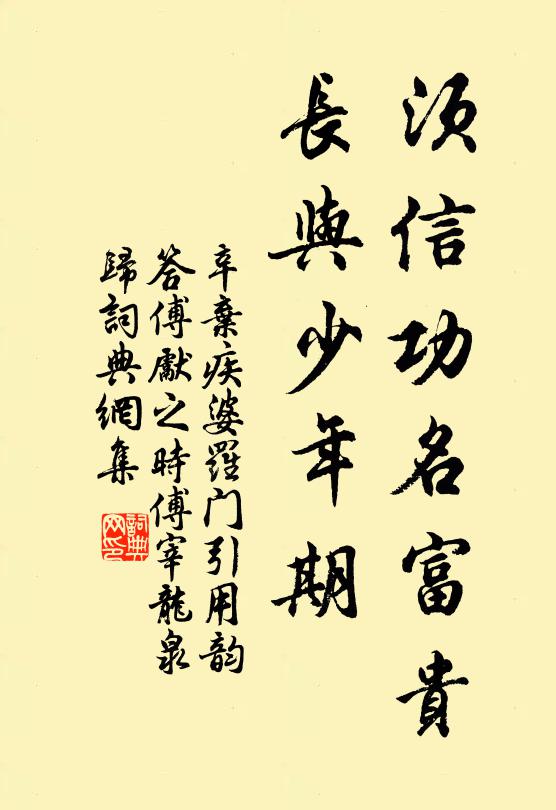 須信功名富貴
長與少年期
辛棄疾婆羅门引用韵
答傅獻之時傅宰龍泉
歸詞典網集
詞典
网印